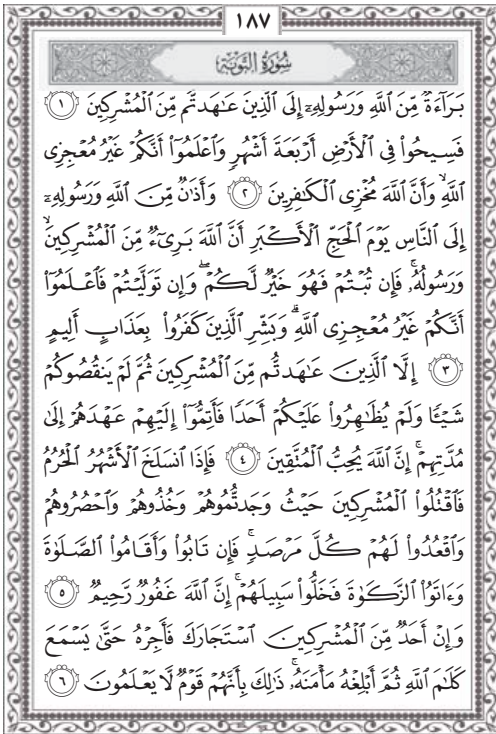 ١٨٧
سُورَةُ التَّوۡبَةِ
بَرَآءَةٞ مِّنَ ٱللَّهِ وَرَسُولِهِۦٓ إِلَى ٱلَّذِينَ عَٰهَدتُّم مِّنَ ٱلۡمُشۡرِكِينَ ١
فَسِيحُواْ فِي ٱلۡأَرۡضِ أَرۡبَعَةَ أَشۡهُرٖ وَٱعۡلَمُوٓاْ أَنَّكُمۡ غَيۡرُ مُعۡجِزِي
ٱللَّهِ وَأَنَّ ٱللَّهَ مُخۡزِي ٱلۡكَٰفِرِينَ ٢ وَأَذَٰنٞ مِّنَ ٱللَّهِ وَرَسُولِهِۦٓ
إِلَى ٱلنَّاسِ يَوۡمَ ٱلۡحَجِّ ٱلۡأَكۡبَرِ أَنَّ ٱللَّهَ بَرِيٓءٞ مِّنَ ٱلۡمُشۡرِكِينَ
وَرَسُولُهُۥۚ فَإِن تُبۡتُمۡ فَهُوَ خَيۡرٞ لَّكُمۡۖ وَإِن تَوَلَّيۡتُمۡ فَٱعۡلَمُوٓاْ
أَنَّكُمۡ غَيۡرُ مُعۡجِزِي ٱللَّهِۗ وَبَشِّرِ ٱلَّذِينَ كَفَرُواْ بِعَذَابٍ أَلِيمٍ
٣ إِلَّا ٱلَّذِينَ عَٰهَدتُّم مِّنَ ٱلۡمُشۡرِكِينَ ثُمَّ لَمۡ يَنقُصُوكُمۡ
شَيۡـٔٗا وَلَمۡ يُظَٰهِرُواْ عَلَيۡكُمۡ أَحَدٗا فَأَتِمُّوٓاْ إِلَيۡهِمۡ عَهۡدَهُمۡ إِلَىٰ
مُدَّتِهِمۡۚ إِنَّ ٱللَّهَ يُحِبُّ ٱلۡمُتَّقِينَ ٤ فَإِذَا ٱنسَلَخَ ٱلۡأَشۡهُرُ ٱلۡحُرُمُ
فَٱقۡتُلُواْ ٱلۡمُشۡرِكِينَ حَيۡثُ وَجَدتُّمُوهُمۡ وَخُذُوهُمۡ وَٱحۡصُرُوهُمۡ
وَٱقۡعُدُواْ لَهُمۡ كُلَّ مَرۡصَدٖۚ فَإِن تَابُواْ وَأَقَامُواْ ٱلصَّلَوٰةَ
وَءَاتَوُاْ ٱلزَّكَوٰةَ فَخَلُّواْ سَبِيلَهُمۡۚ إِنَّ ٱللَّهَ غَفُورٞ رَّحِيمٞ ٥
وَإِنۡ أَحَدٞ مِّنَ ٱلۡمُشۡرِكِينَ ٱسۡتَجَارَكَ فَأَجِرۡهُ حَتَّىٰ يَسۡمَعَ
كَلَٰمَ ٱللَّهِ ثُمَّ أَبۡلِغۡهُ مَأۡمَنَهُۥۚ ذَٰلِكَ بِأَنَّهُمۡ قَوۡمٞ لَّا يَعۡلَمُونَ ٦